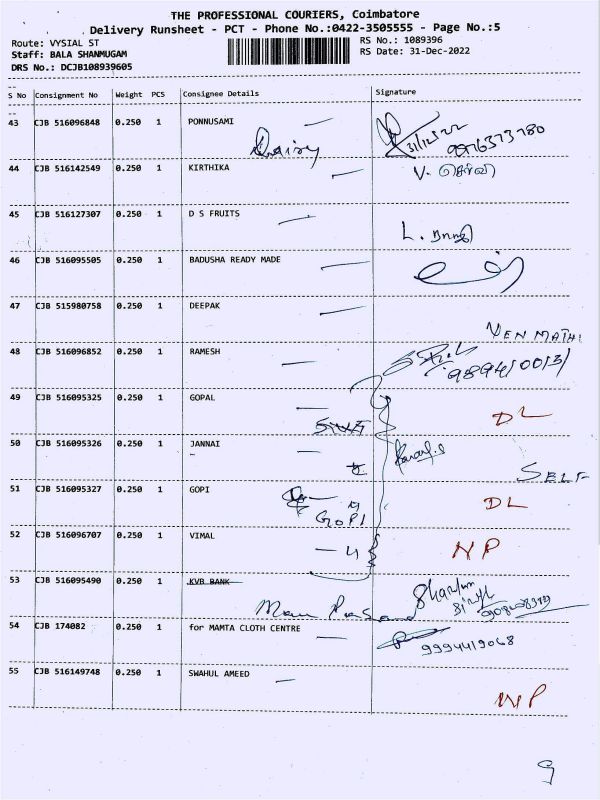 THE PROFESSIONAL COURIERS, Coimbatore
Delivery Runsheet - PCT - Phone No.:0422-3505555 - Page No.:5
Route: VYSIAL ST
RS No.: 1089396
Staff: BALA SHANMUGAM
RS Date: 31-Dec-2022
DRS No.: DCJB108939605
S No Consignment No Weight PCS Consignee Details Signature
43 CJB 516096848 0.250 1 PONNUSAMI
31/12/22
44 CJB 516142549 0.250 1 KIRTHIKA V.
45 CJB 516127307 0.250 1 D S FRUITS
L.
46 CJB 516095505 0.250 1 BADUSHA READY MADE
47 CJB 515980758 0.250 1 DEEPAK
VENMATHI
48 CJB 516096852 0.250 1 RAMESH
49 CJB 516095325 0.250 1 GOPAL
DL
50 CJB 516095326 0.250 1 JANNAI
SELF
51 CJB 516095327 0.250 1 GOPI DL
GOPI
52 CJB 516096707 0.250 1 VIMAL NP
53 CJB 516095490 0.250 1 KVB BANK
54 CJB 174082 0.250 1 for MAMTA CLOTH CENTRE
9994419068
55 CJB 516149748 0.250 1 SWAHUL AMEED
NP